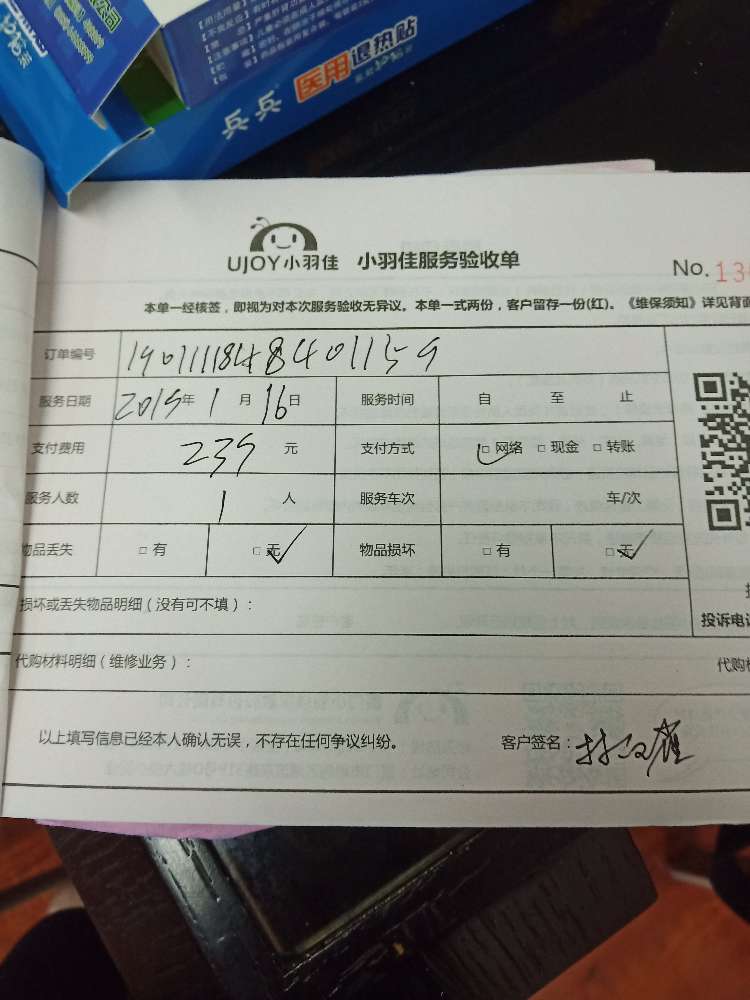 兵兵 医用退热贴
UJOY小羽佳 小羽佳服务验收单
No. 13
本单一经核签，即视为对本次服务验收无异议。本单一式两份，客户留存一份(红)。《维保须知》详见背面
订单编号 1901111848401159
服务日期 2019年 1 月 16日 服务时间 自 至 止
支付费用 239 元 支付方式 □ 网络 □ 现金 □ 转账
服务人数 1 人 服务车次 车/次
物品丢失 □ 有 □ 无 物品损坏 □ 有 □ 无
损坏或丢失物品明细（没有可不填）：
投诉电话
代购材料明细（维修业务）： 代购
以上填写信息已经本人确认无误，不存在任何争议纠纷。 客户签名：